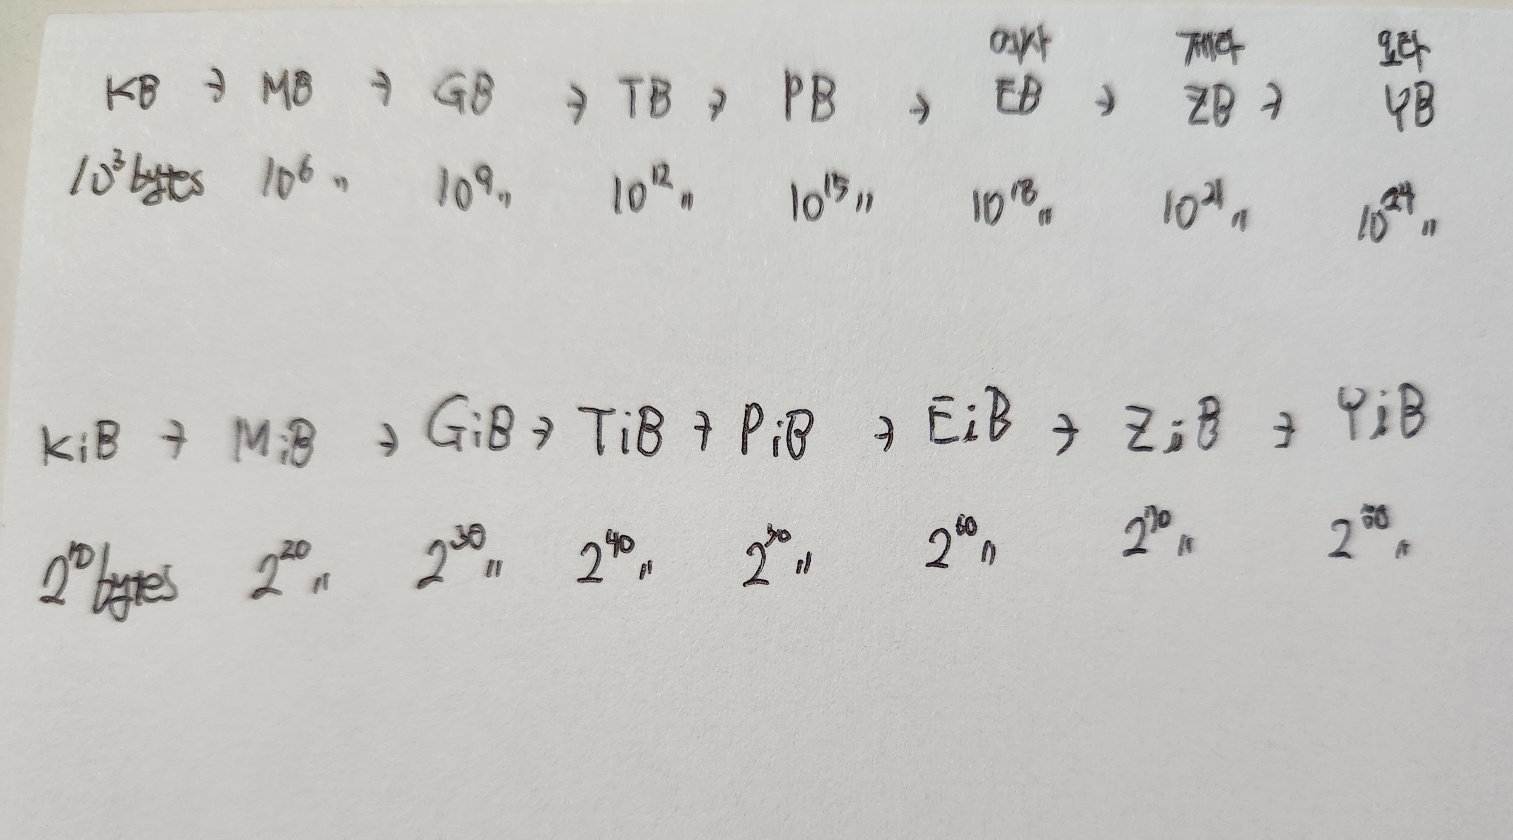 엑사 제타 요타
KB → MB → GB → TB → PB → EB → ZB → YB
10³ bytes 10⁶ 〃 10⁹ 〃 10¹² 〃 10¹⁵ 〃 10¹⁸ 〃 10²¹ 〃 10²⁴ 〃
KiB → MiB → GiB → TiB → PiB → EiB → ZiB → YiB
2¹⁰ bytes 2²⁰ 〃 2³⁰ 〃 2⁴⁰ 〃 2⁵⁰ 〃 2⁶⁰ 〃 2⁷⁰ 〃 2⁸⁰ 〃